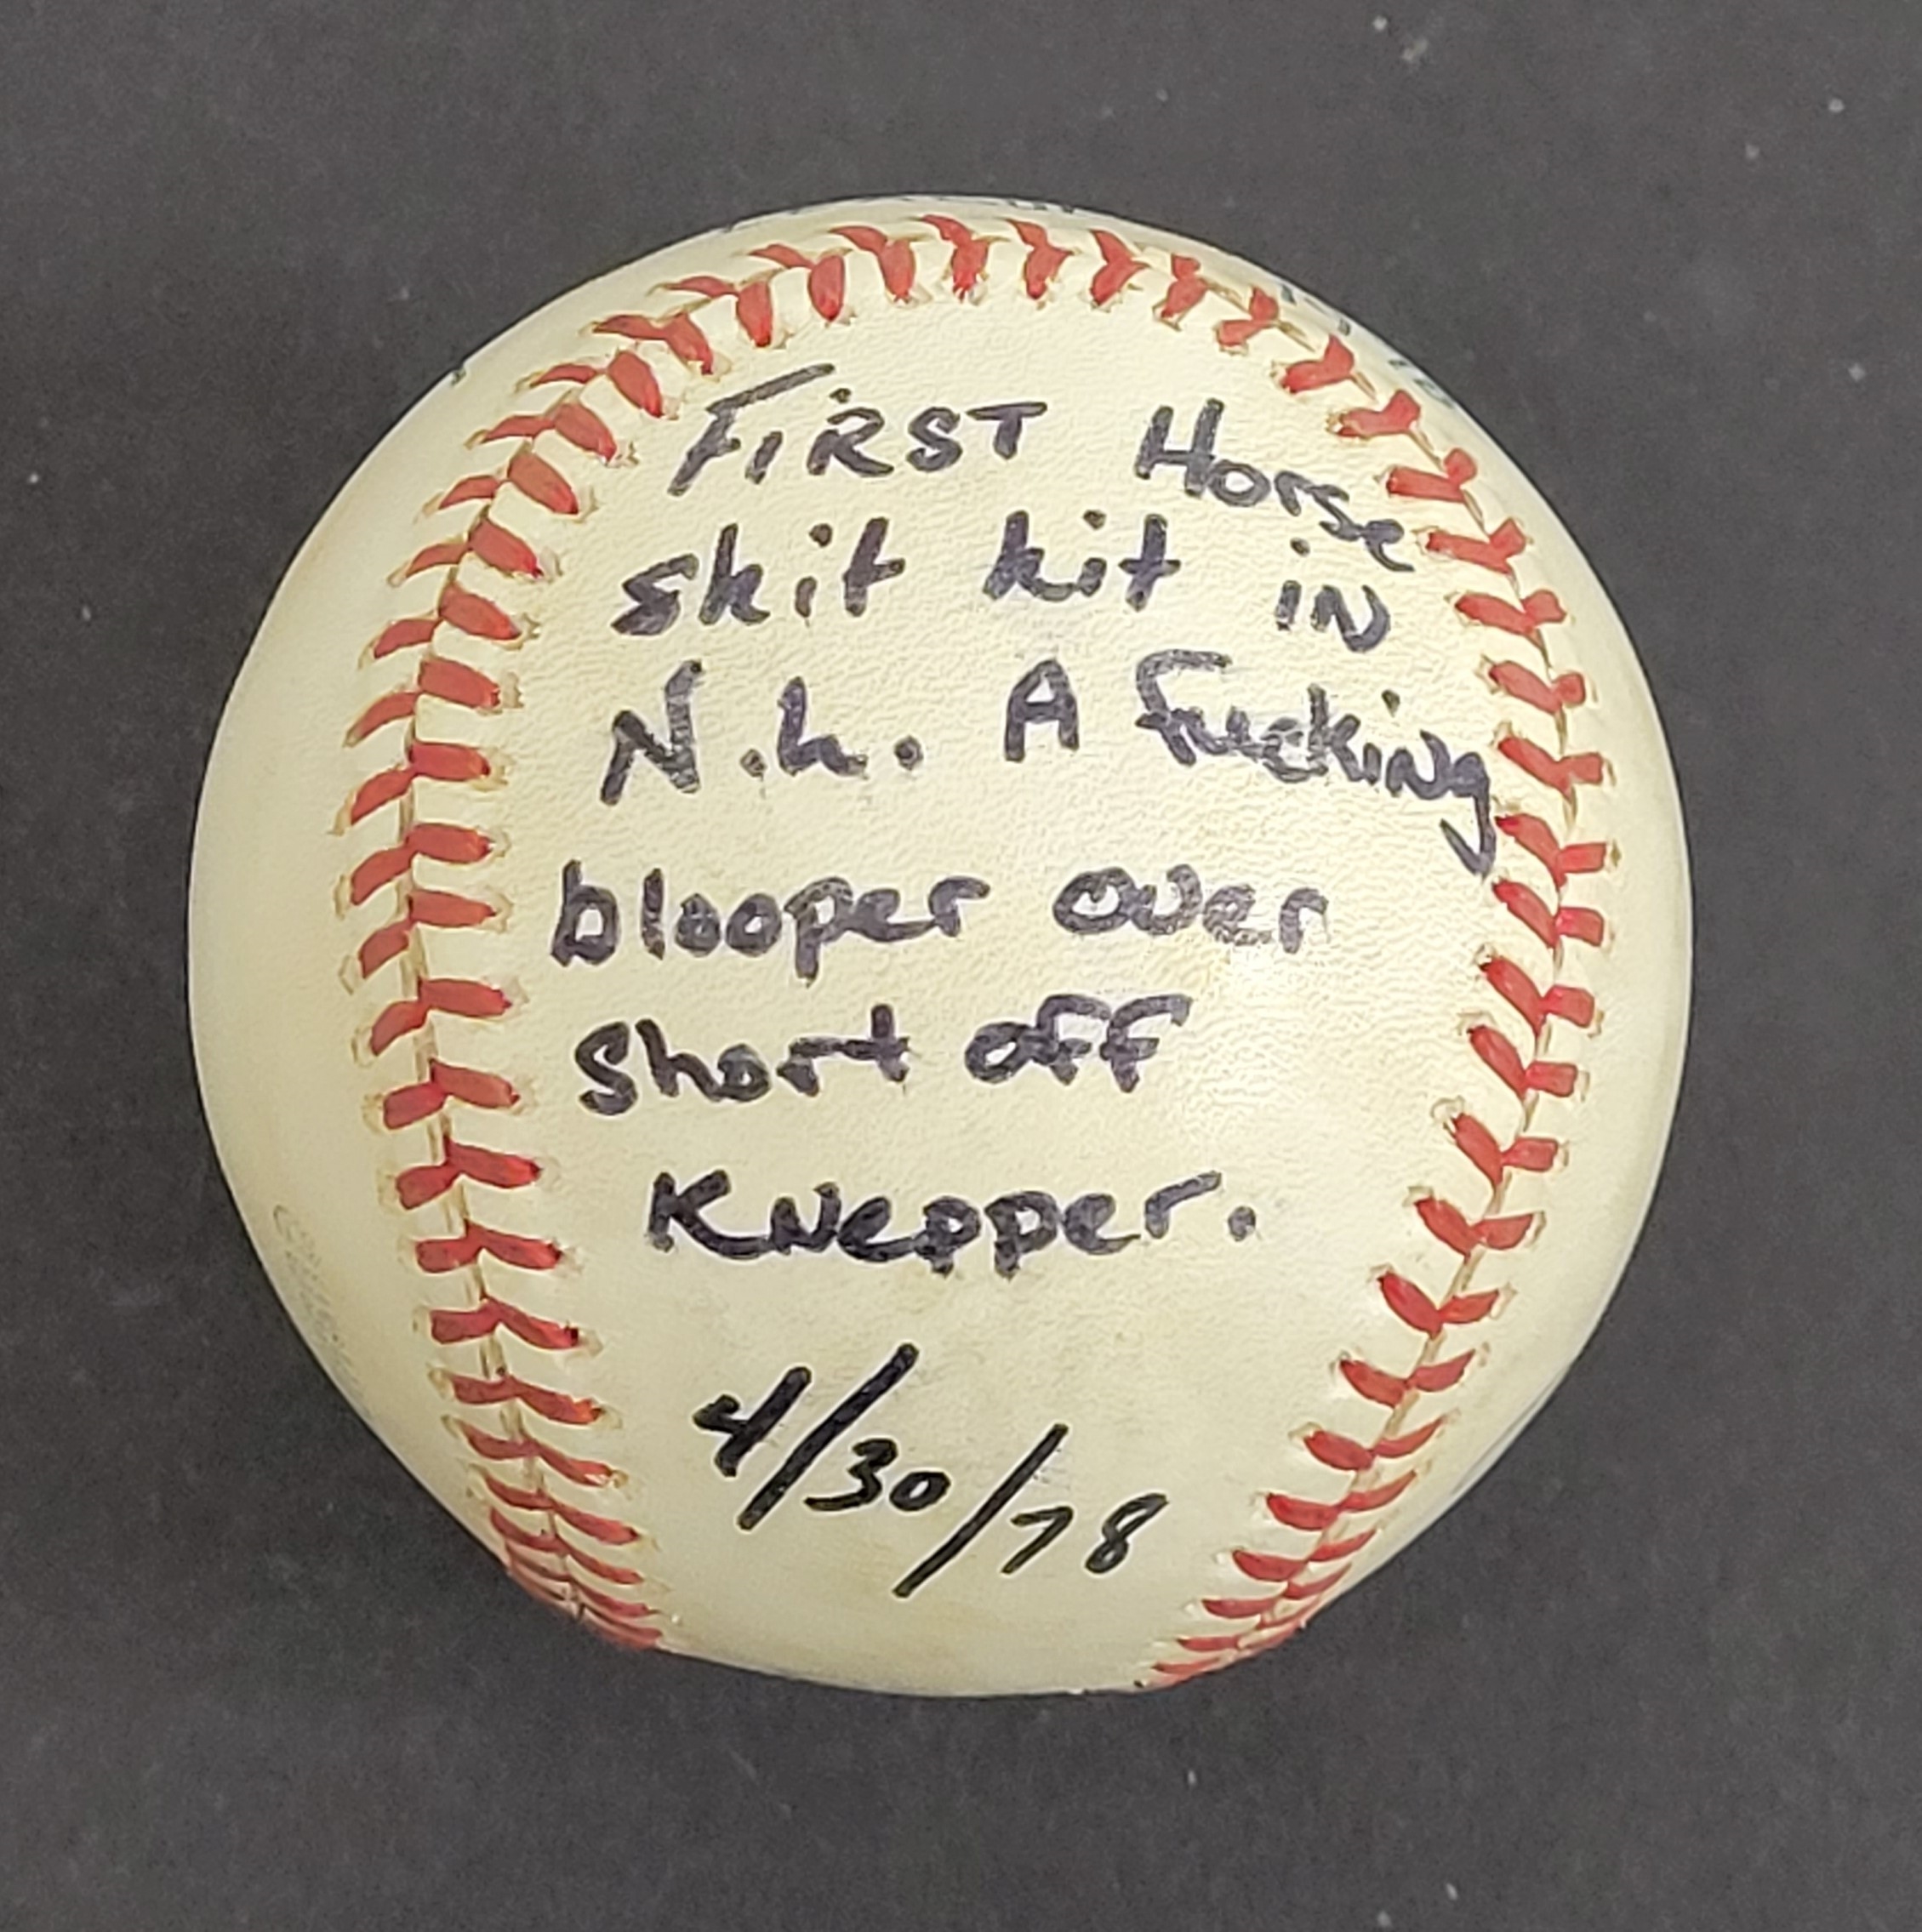 FIRST Horse
shit hit in
N.L. A Fucking
blooper over
short off
Knepper.
4/30/78